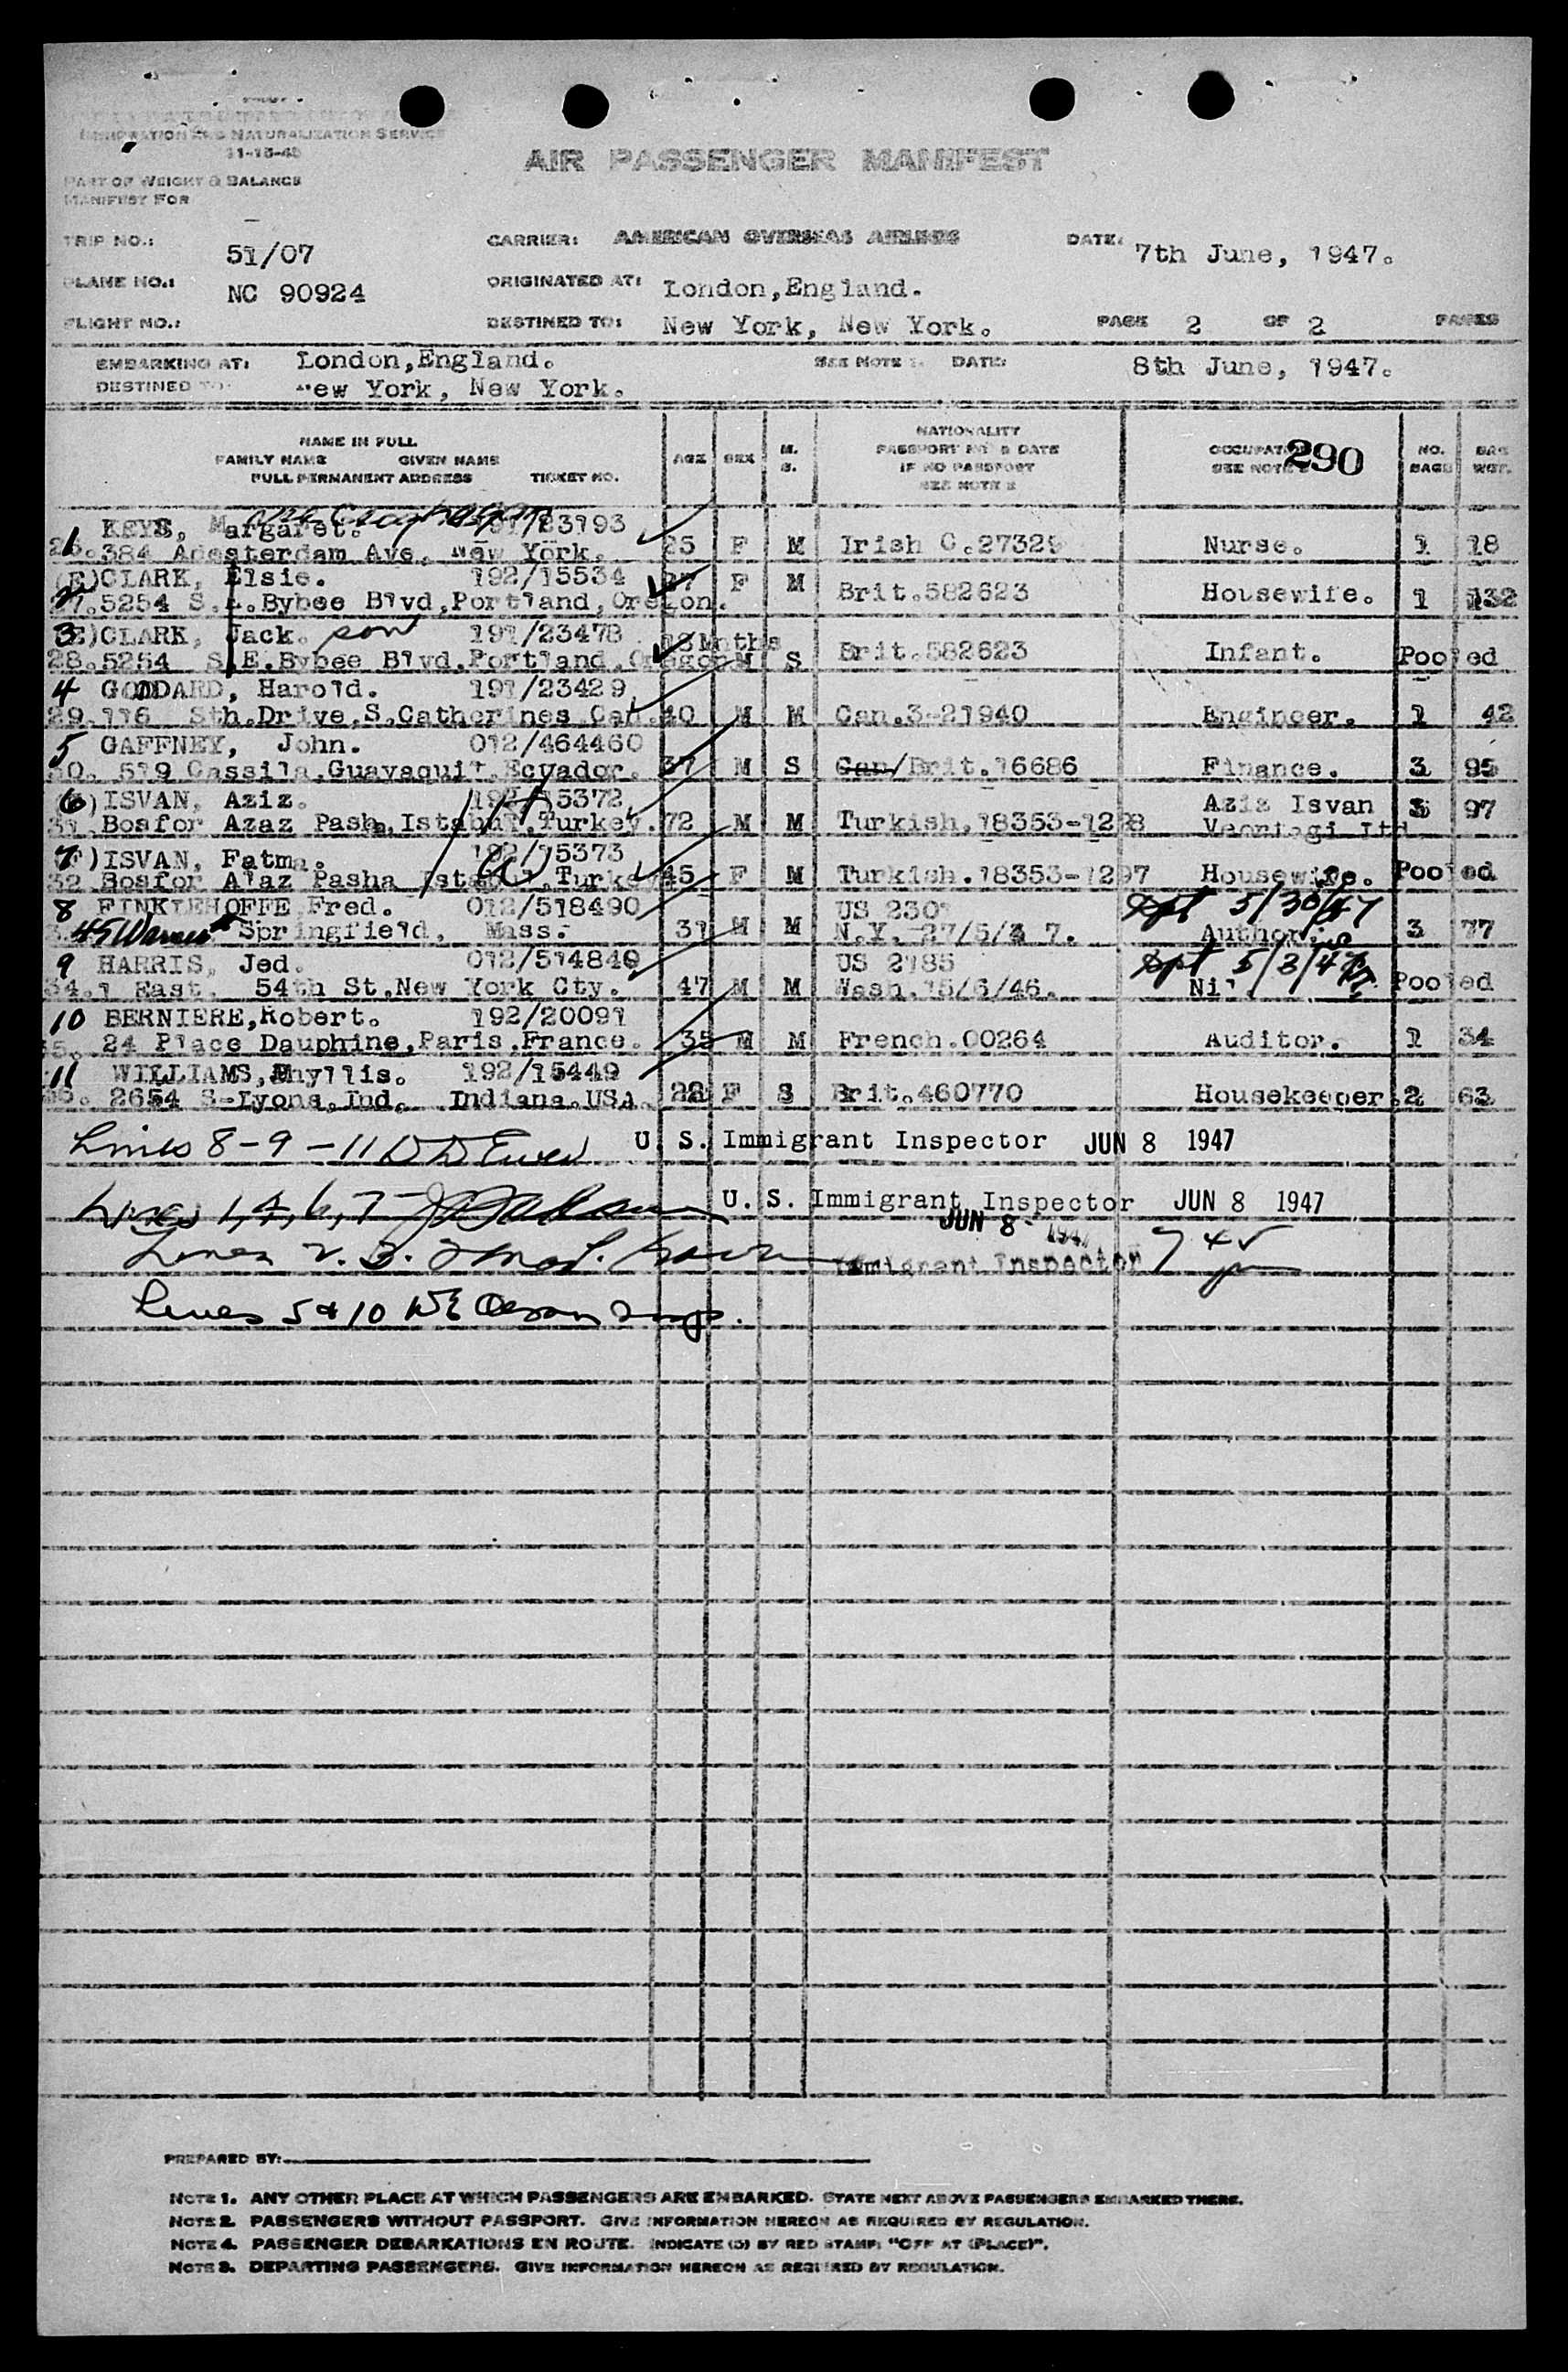 IMMIGRATION AND NATURALIZATION SERVICE
11-15-45
AIR PASSENGER MANIFEST
PART OF WEIGHT & BALANCE
MANIFEST FOR
TRIP NO.: 51/07 CARRIER: AMERICAN OVERSEAS AIRLINES DATE: 7th June, 1947.
PLANE NO.: NC 90924 ORIGINATED AT: London,England.
FLIGHT NO.: DESTINED TO: New York, New York. PAGE 2 OF 2 PAGES
EMBARKING AT: London,England. SEE NOTE 1. DATE: 8th June, 1947.
DESTINED TO: New York, New York.
NAME IN FULL
FAMILY NAME GIVEN NAME
FULL PERMANENT ADDRESS TICKET NO.
AGE SEX M. S.
NATIONALITY
PASSPORT NO. & DATE
IF NO PASSPORT
SEE NOTE 2
OCCUPATION
SEE NOTE
290
NO. BAGS BAG WGT.
1 KEYS, Margaret. 191/23193
384 Amesterdam Ave, New York. 25 F M Irish C.27329 Nurse. 1 18
2 CLARK, Elsie. 192/15534
27.5254 S.E.Bybee Blvd,Portland,Oregon. 27 F M Brit.582623 Housewife. 1 132
3 CLARK, Jack. son 191/23478
28.5254 S.E.Bybee Blvd,Portland,Oregon Mnths M S Brit.582623 Infant. Pooled
4 GODDARD, Harold. 191/23429
29.116 Sth.Drive,S.Catherines Can. 40 M M Can.3-21940 Engineer. 1 42
5 GAFFNEY, John. 012/464460
30. 519 Cassila,Guayaquil,Ecuador. 37 M S Can/Brit.16686 Finance. 3 95
6 ISVAN, Aziz. 192/15372
31.Bosfor Azaz Pasha,Istabul,Turkey. 72 M M Turkish.18353-1298 Aziz Isvan 3 97
7 ISVAN, Fatma. 192/15373
32.Bosfor Alaz Pasha Istabul,Turkey 45 F M Turkish.18353-1297 Housewife. Pooled
8 FINKLEHOFFE Fred. 012/518490 US 2301 5/30/47
45 Warner St Springfield, Mass. 31 M M N.Y. 27/5/4 7. Author. 3 77
9 HARRIS, Jed. 012/514849 US 2185 5/3/47
34.1 East. 54th St,New York Cty. 47 M M Wash.15/6/46. Nil. Pooled
10 BERNIERE,Robert. 192/20091
35. 24 Place Dauphine,Paris,France. 35 M M French.00264 Auditor. 1 34
11 WILLIAMS,Phyllis. 192/15449
36. 2654 S-Lyons,Ind, Indiana.USA. 22 F S Brit.460770 Housekeeper. 2 63
Lines 8-9-11 U. S. Immigrant Inspector JUN 8 1947
Lines 1,4,6,7 U. S. Immigrant Inspector JUN 8 1947
JUN 8 - 1947
Lines 2. 3. Immigrant Inspector
Lines 5 & 10
PREPARED BY:
NOTE 1. ANY OTHER PLACE AT WHICH PASSENGERS ARE EMBARKED. STATE NEXT ABOVE PASSENGERS EMBARKED THERE.
NOTE 2. PASSENGERS WITHOUT PASSPORT. GIVE INFORMATION HEREON AS REQUIRED BY REGULATION.
NOTE 4. PASSENGER DEBARKATIONS EN ROUTE. INDICATE (D) BY RED STAMP: "OFF AT (PLACE)".
NOTE 3. DEPARTING PASSENGERS. GIVE INFORMATION HEREON AS REQUIRED BY REGULATION.